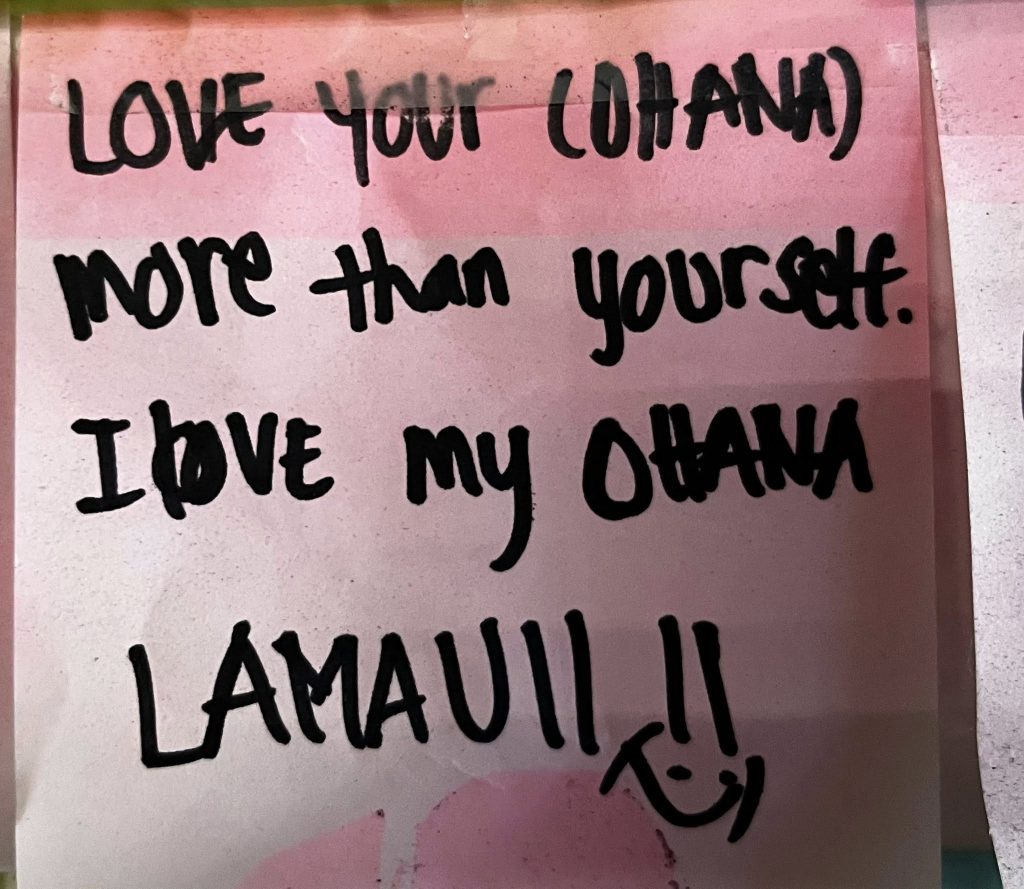 LOVE your (OHANA)
more than yourself.
I lOVE my OHANA
LAMAUII !!